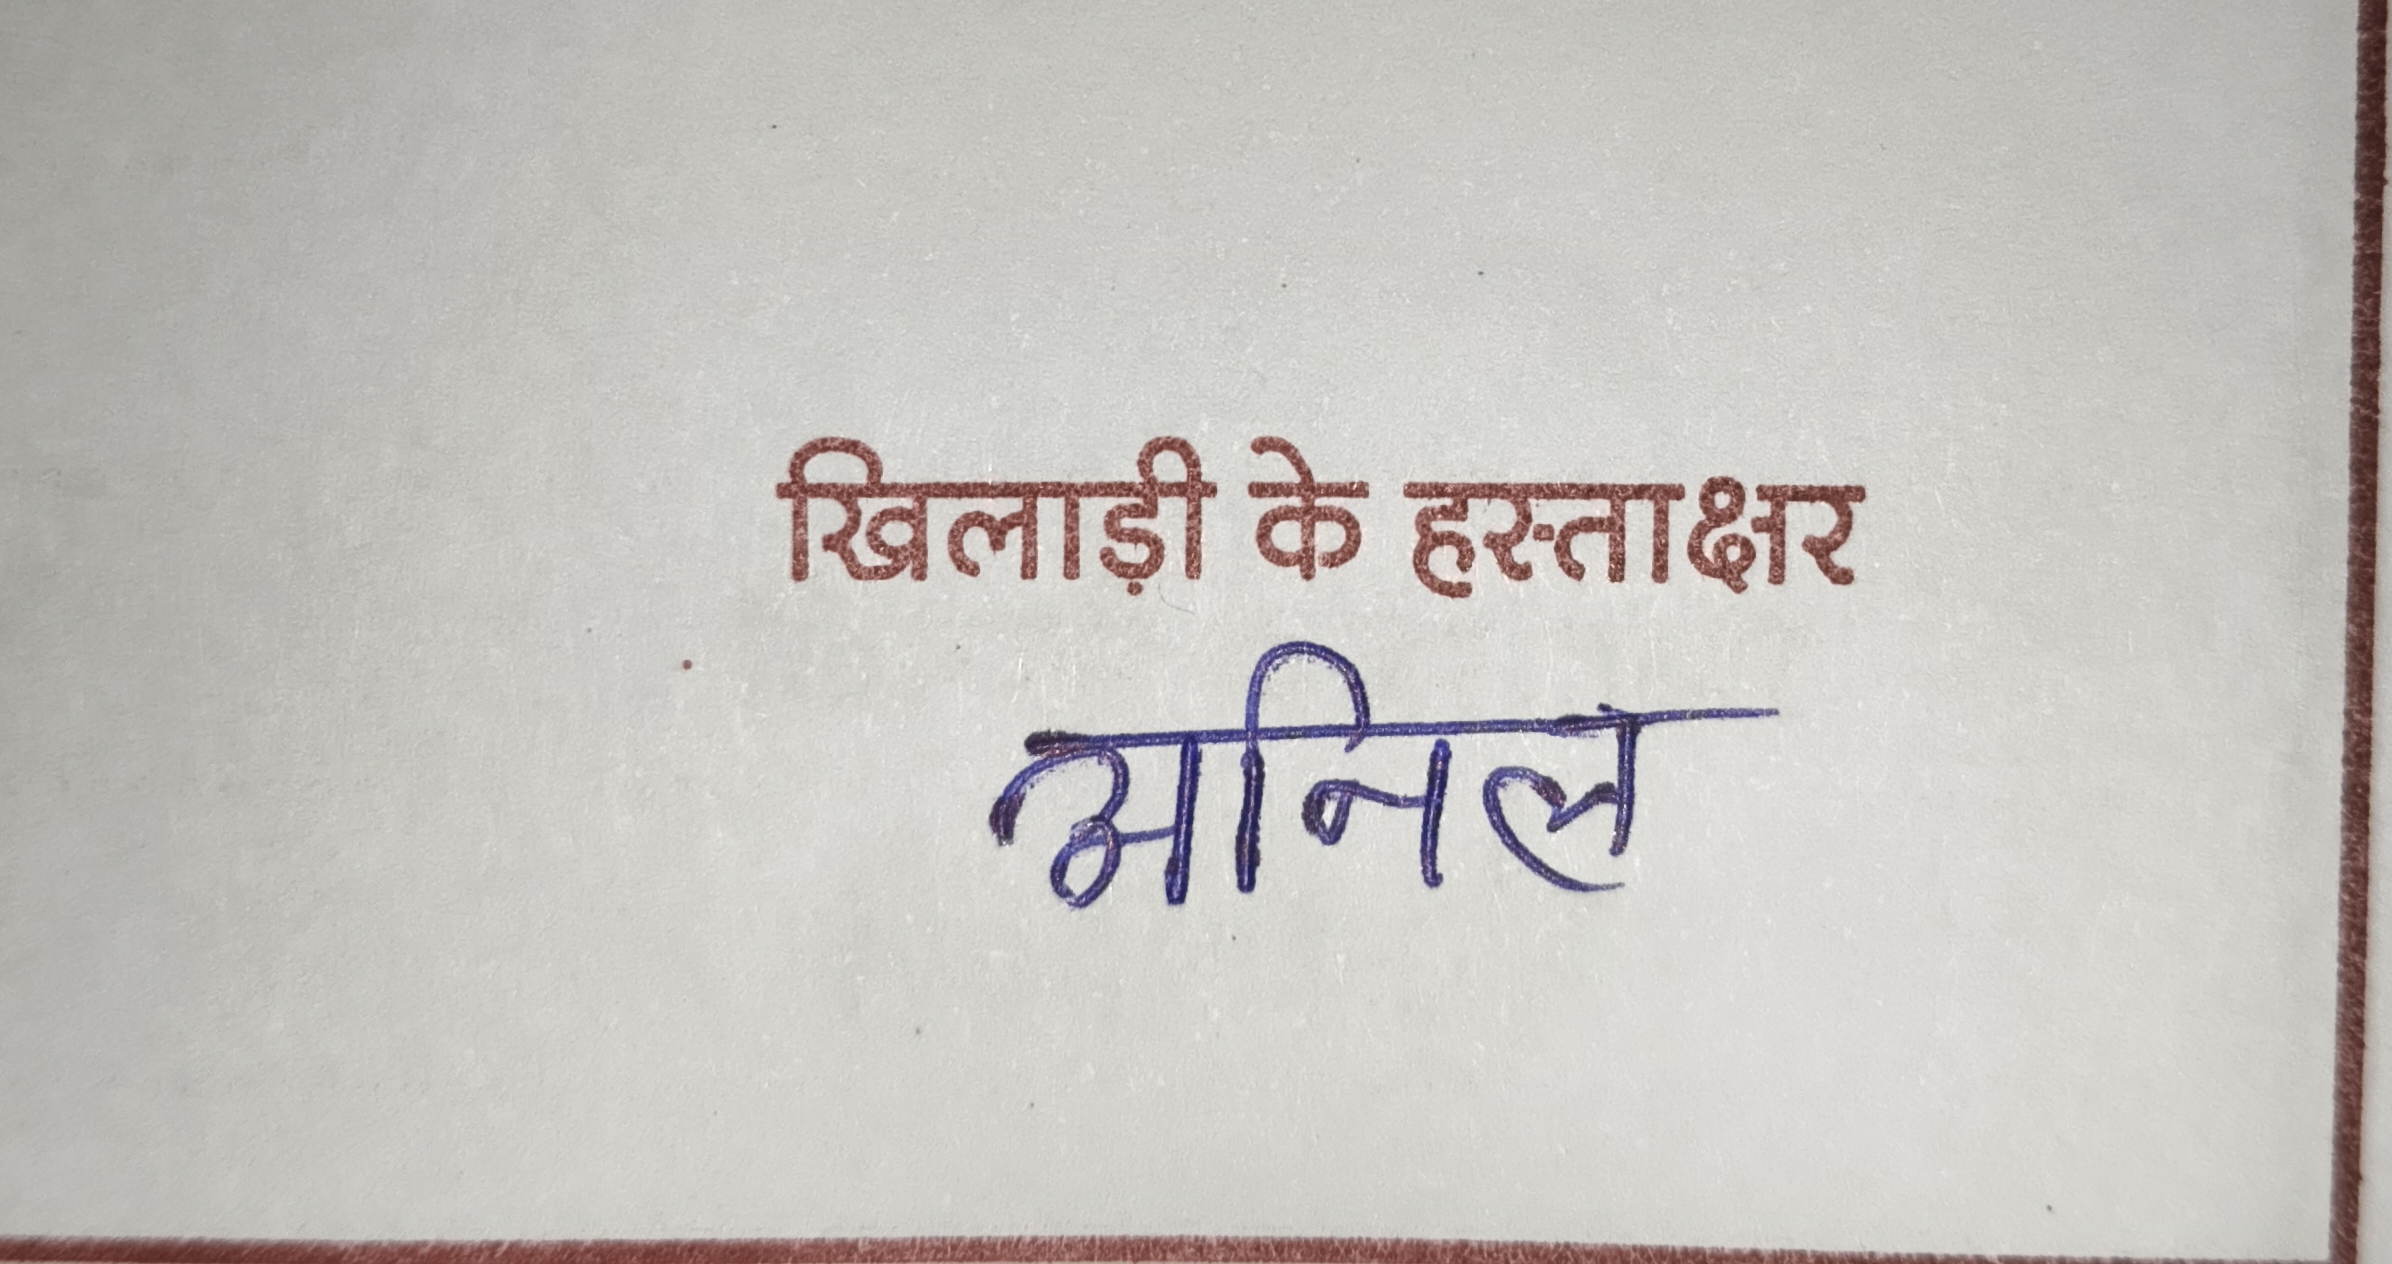 खिलाड़ी के हस्ताक्षर
अनिल